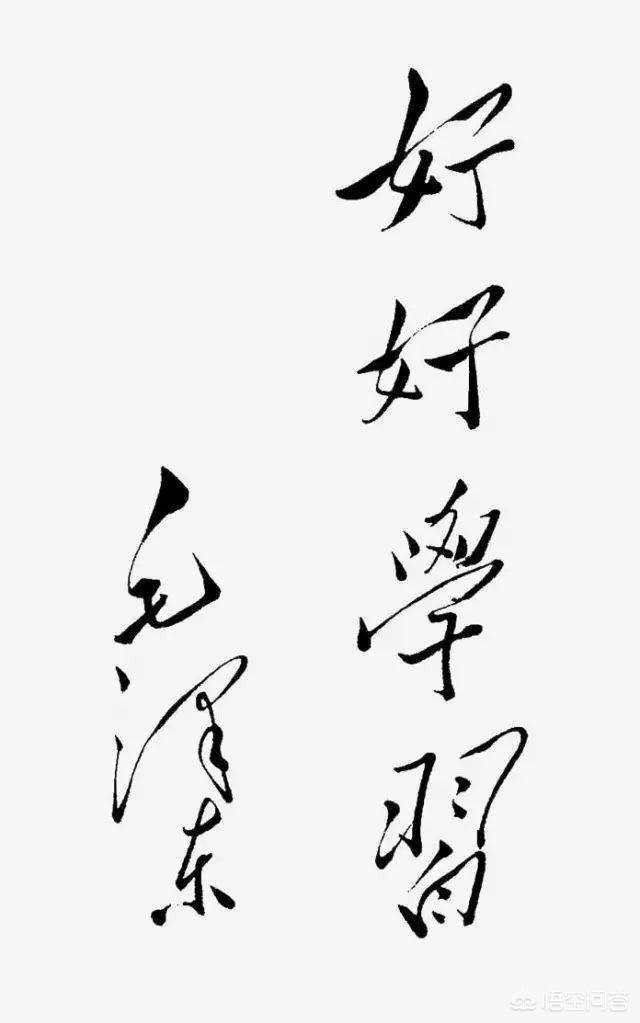 好好學習
毛泽东
悟空问答